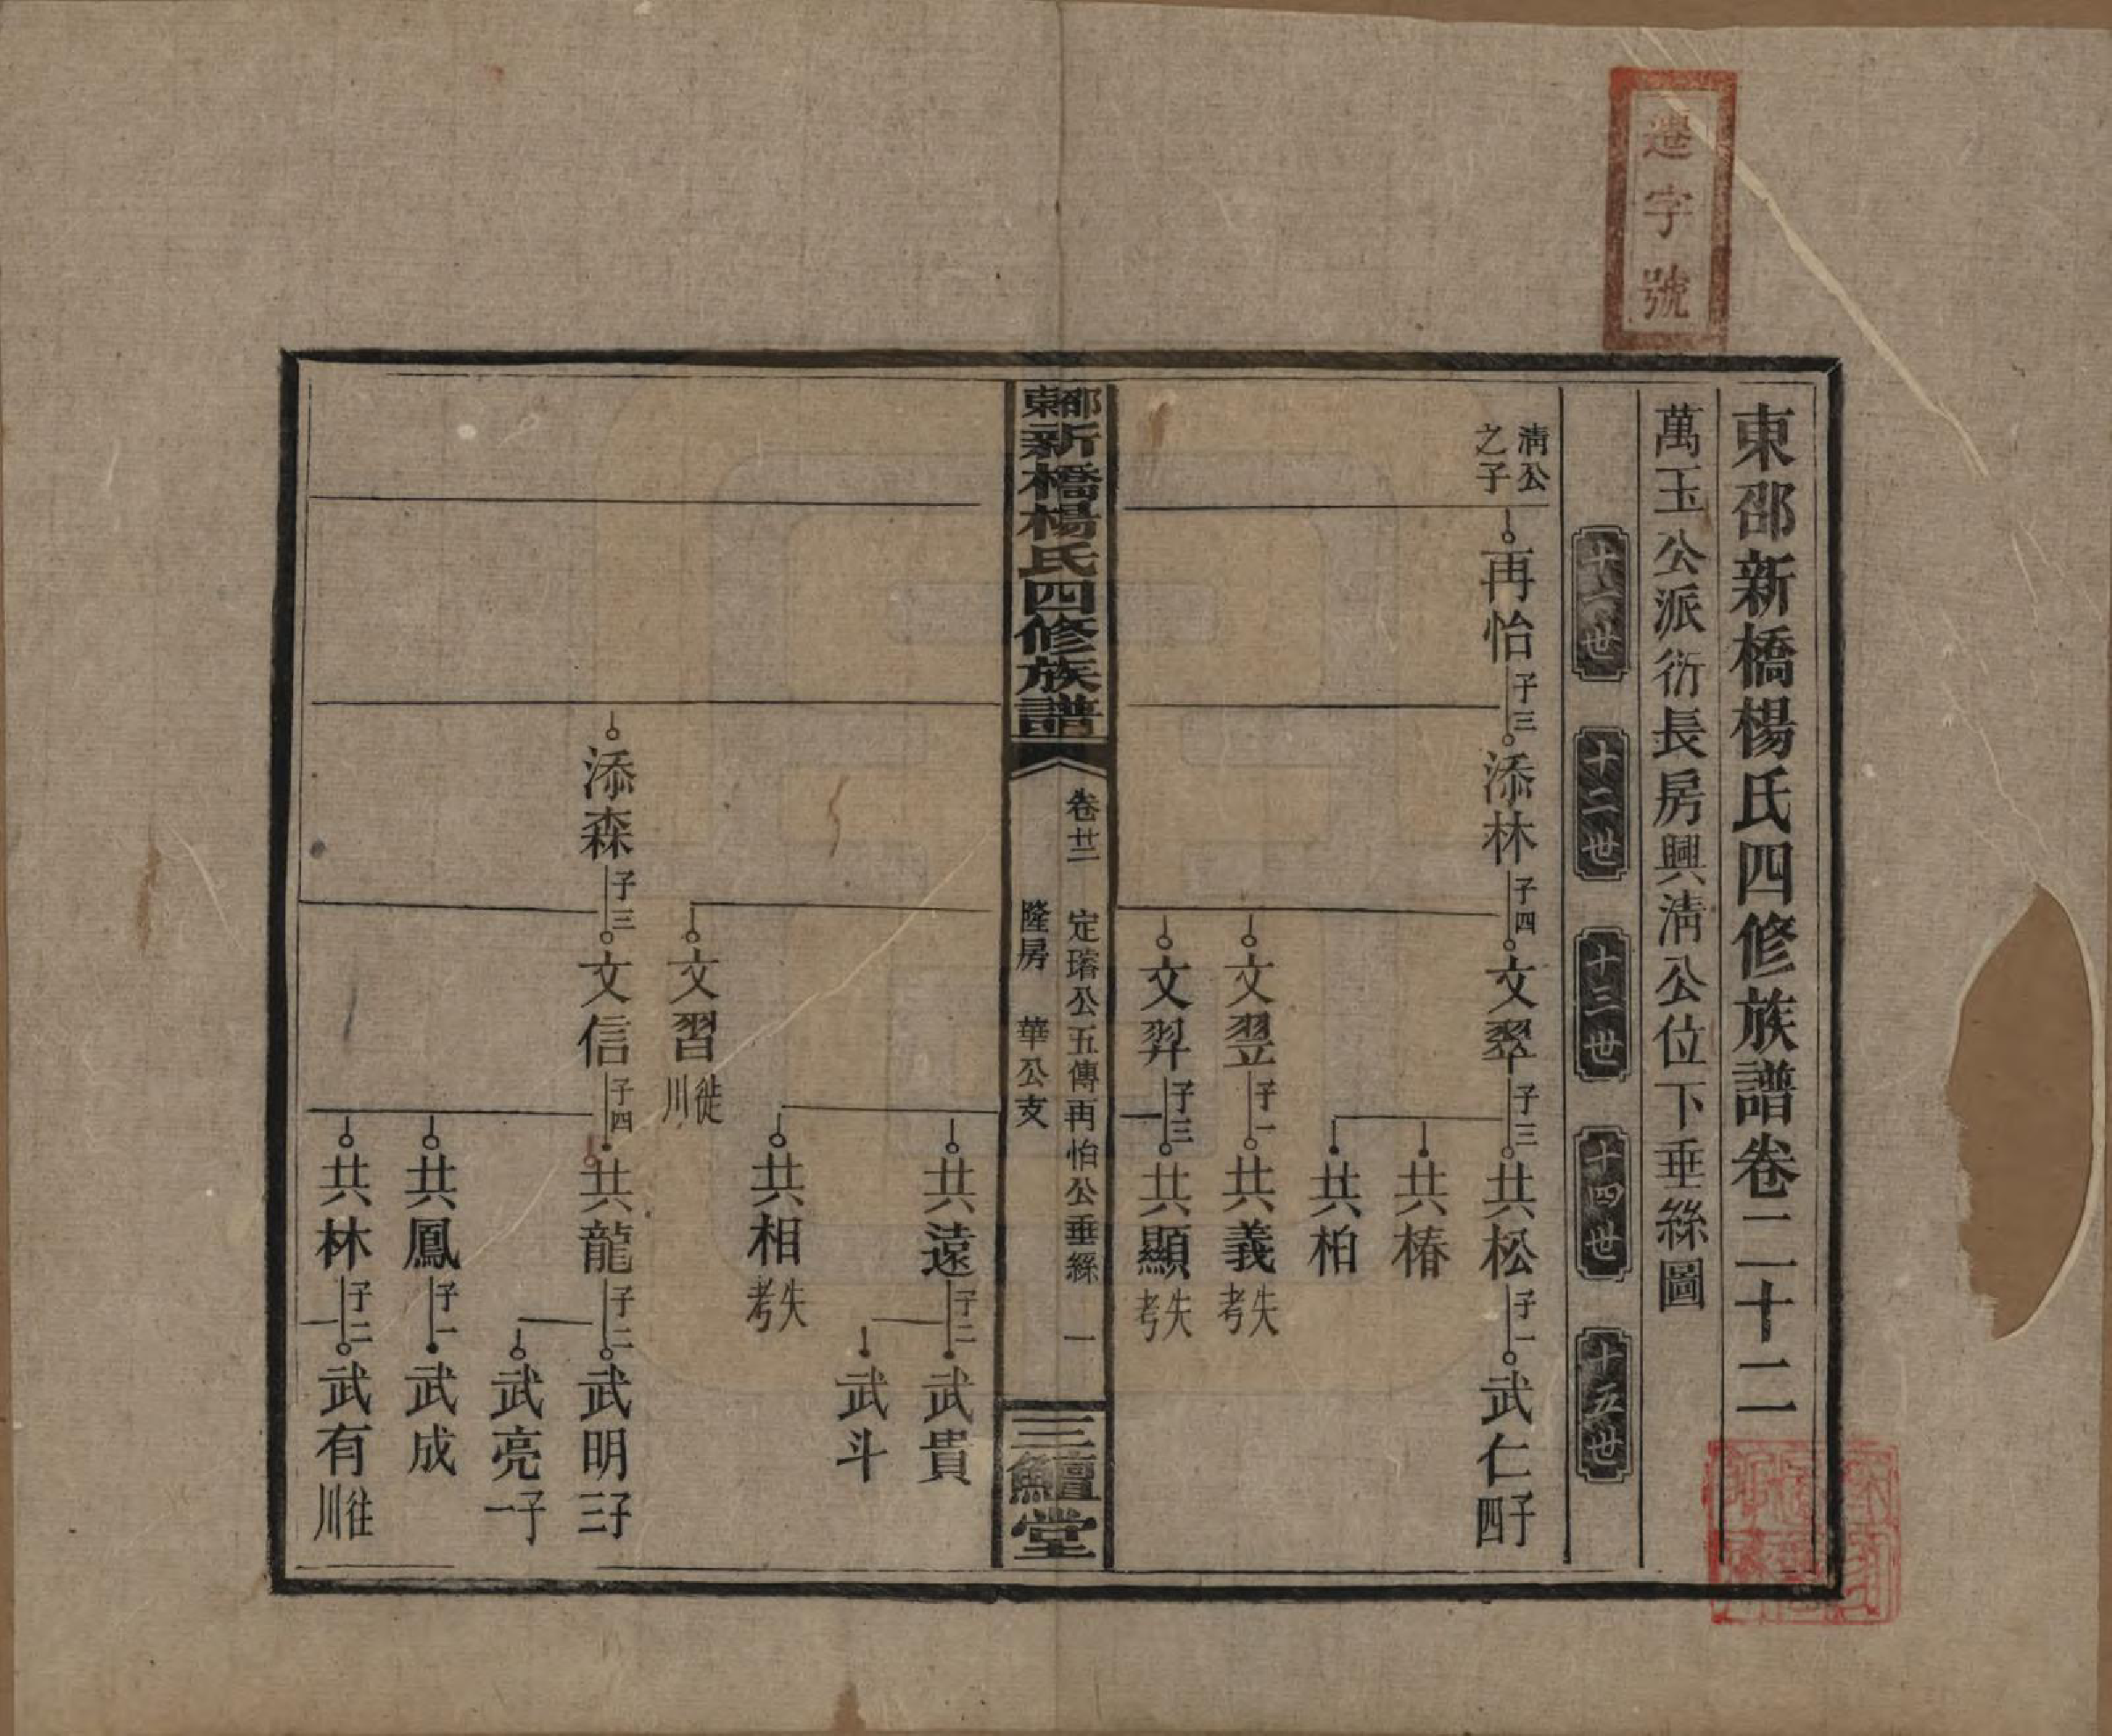 遷字號
東邵新橋楊氏四修族譜卷二十二
萬玉公派衍長房興淸公位下垂絲圖
十一世
十二世
十三世
十四世
十五世
淸公之子
再怡子三
添林子四
文翠子三
共松子一
武仁子四
共椿
共柏
文翌子一
共義失考
文羿子三
共顯失考
東邵新橋楊氏四修族譜
卷廿二
定璿公五傳再怡公垂絲
一
隆房
華公支
三鱣堂
共遠子二
武貴
武斗
共相失考
文習徙川
添森子三
文信子四
共龍子二
武明子三
武亮子一
共鳳子一
武成
共林子二
武有往川